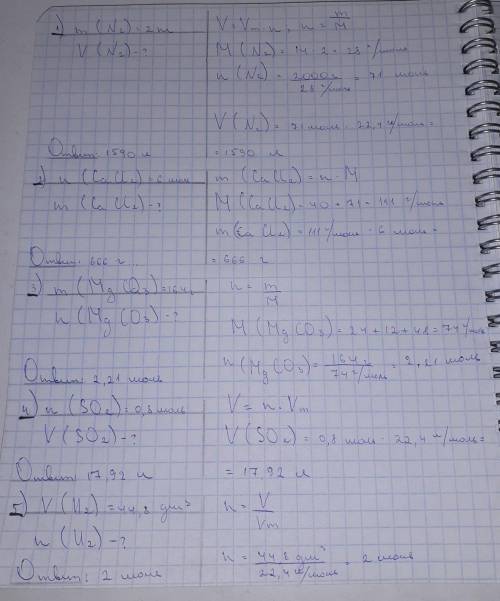 1) m (N₂) = 2 т
V (N₂) - ?
V = Vm · n ; n = m/M
M (N₂) = 14 · 2 = 28 г/моль
n (N₂) = 2000г / 28 г/моль = 71 моль
V (N₂) = 71 моль · 22,4 л/моль =
= 1590 л
Ответ: 1590 л
2) n (CaCl₂) = 6 мол
m (CaCl₂) - ?
m (CaCl₂) = n · M
M (CaCl₂) = 40 + 71 = 111 г/моль
m (CaCl₂) = 111 г/моль · 6 моль =
= 666 г
Ответ: 666 г
3) m (MgCO₃) = 164г
n (MgCO₃) - ?
n = m/M
M (MgCO₃) = 24 + 12 + 48 = 74 г/моль
n (MgCO₃) = 164г / 74 г/моль = 2,21 моль
Ответ 2,21 моль
4) n (SO₂) = 0,8 моль
V (SO₂) - ?
V = n · Vm
V (SO₂) = 0,8 мол · 22,4 л/моль =
= 17,92 л
Ответ 17,92 л
5) V (H₂) = 44,8 дм³
n (H₂) - ?
n = V/Vm
n = 44,8 дм³ / 22,4 л/моль = 2 моль
Ответ: 2 моль